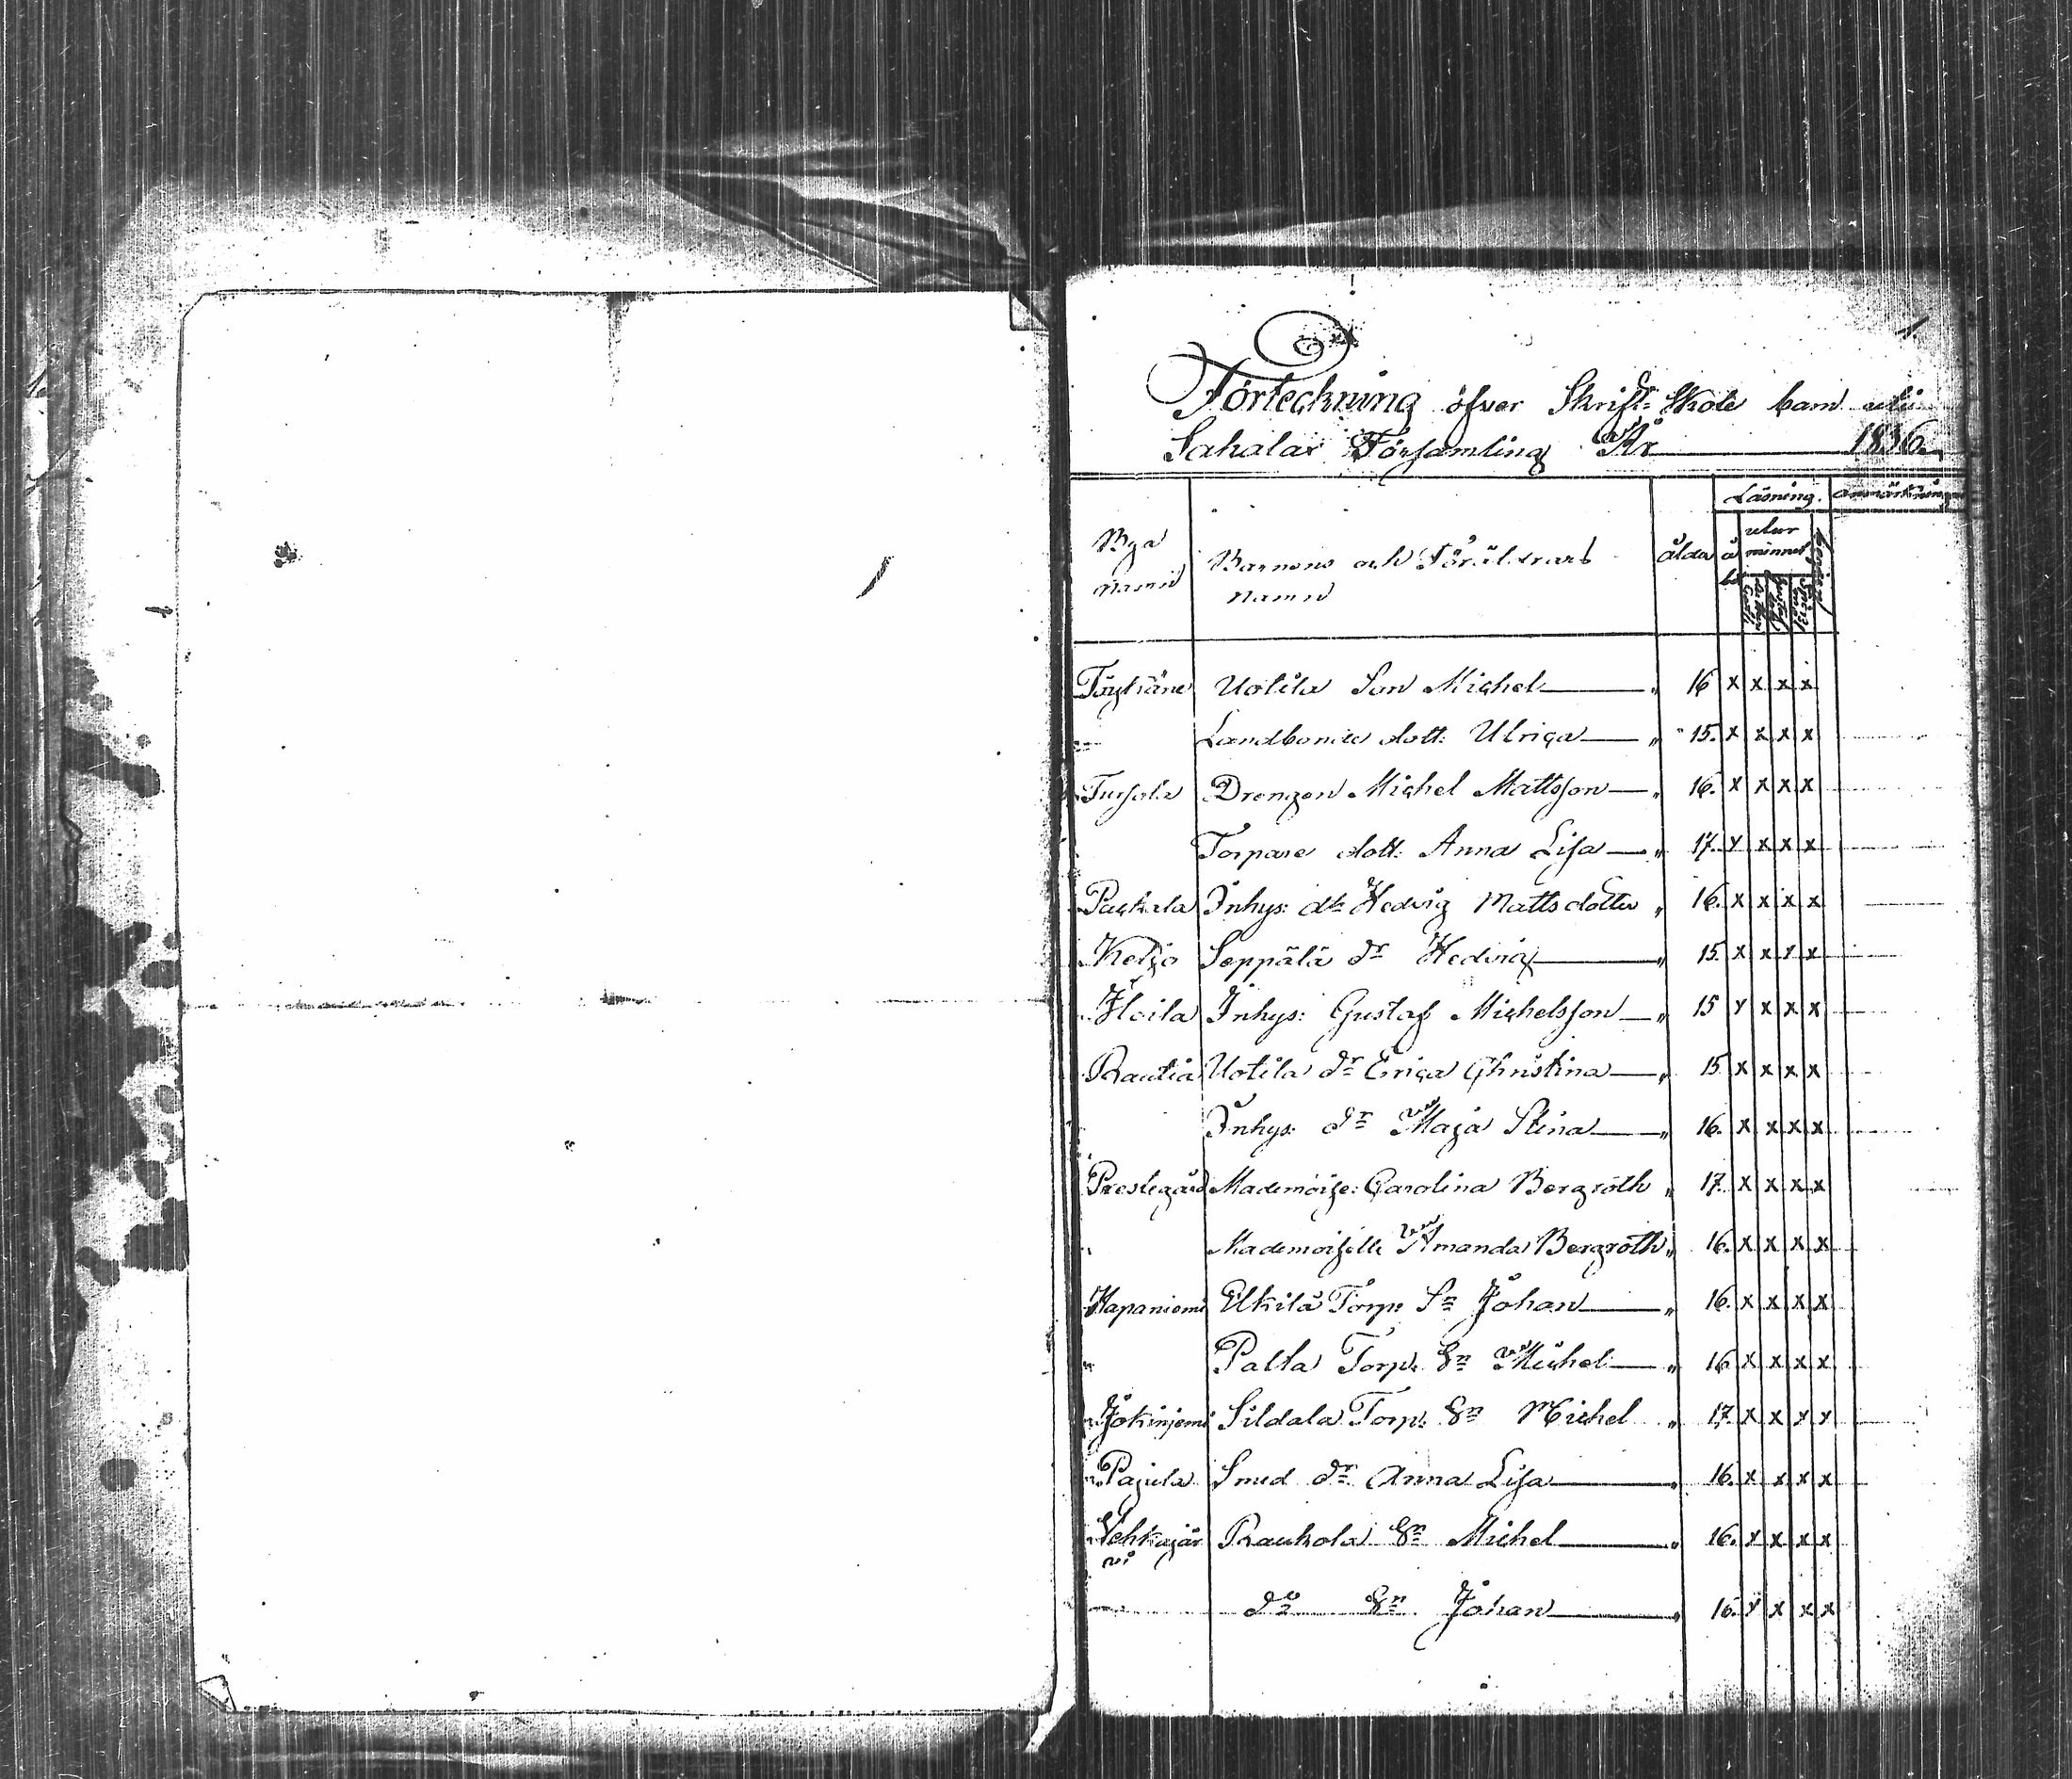 1.
Förteckning öfver Skrift-Skole barn uti
Sahalax Församling År 1836.
Läsning. anmärkningar
Bya namn Barnens och Föräldrars namn ålder utur minnet
Töyträne Uotila Son Michel 16 x x x x
Landbonde dott: Ulrica 15. x x x x
Tursola Drengen Michel Mattsson 16. x x x x
Torpare dott: Anna Lisa 17. x x x x
Packala Inhys: dr Hedvig Matts dotter 16. x x x x
Keljo Seppälä dr Hedvig 15 x x x x
Iloila Inhys: Gustaf Michelsson 15 x x x x
Rautia Uotila dr Erica Christina 15 x x x x
Inhys: dr Maja Stina 16. x x x x
Prestegård Mademoise: Carolina Bergroth 17. x x x x
Mademoiselle Amanda Bergroth 16. x x x x
Hapaniemi Eikilä Torp: Sn Johan 16. x x x x
Palta Torp: Sn Michel 16 x x x x
Jokinjemi Sildala Torp: Sn Michel 17 x x x x
Pajula Smed dr Anna Lisa 16. x x x x
Vehkajärvi Raukola Sn Michel 16. x x x x
do Sn Johan 16. x x x x